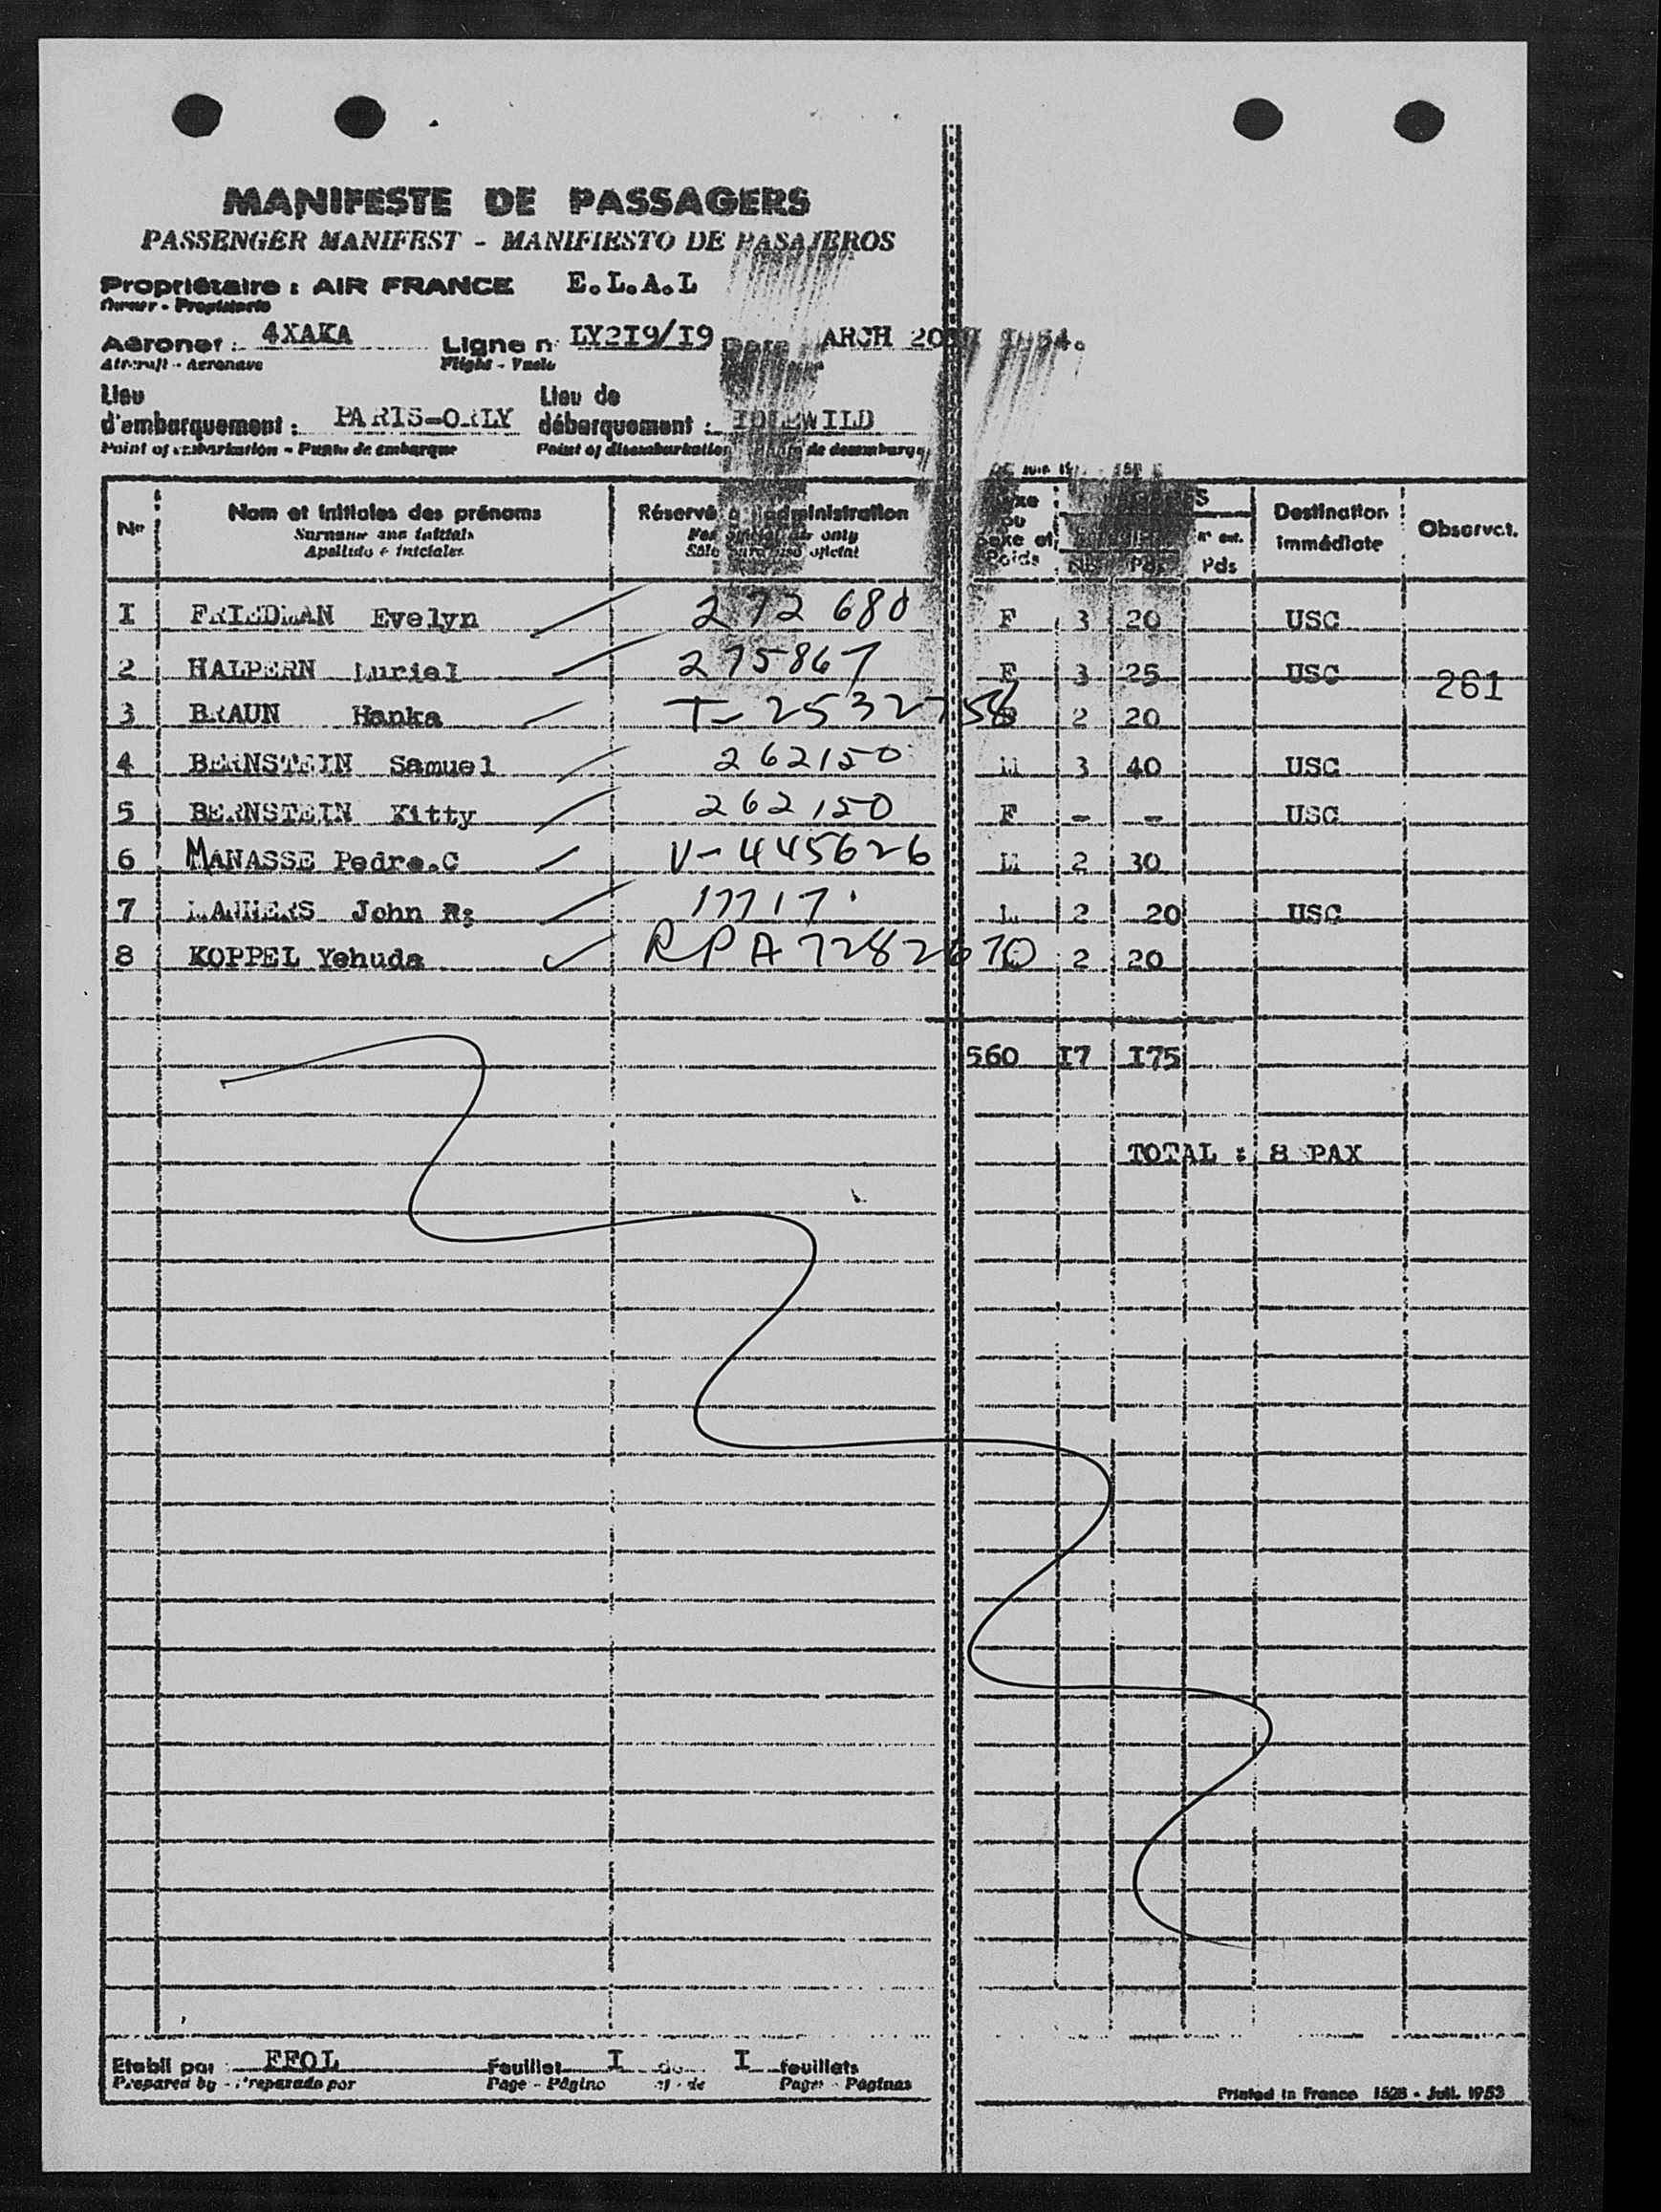 MANIFESTE DE PASSAGERS
PASSENGER MANIFEST - MANIFIESTO DE PASAJEROS
Propriétaire : AIR FRANCE E.L.A.L
Owner - Propietario
Aéronef : 4XAKA Ligne n LY2I9/I9 Date ARCH 20
Aircraft - Aeronave Flight - Vuelo
Lieu d'embarquement : PARIS-ORLY Lieu de débarquement : IDLEWILD
Point of embarkation - Punto de embarque Point of disembarkation de desembarque
No Nom et initiales des prénoms Réservé à l'administration Sexe ou Sexe et Poids Destination immédiate Observat.
Surname and initials For official use only Pds Pds
Apellido e iniciales Sólo para uso oficial
I FRIEDMAN Evelyn 272 680 F 3 20 USC
2 HALPERN Muriel 275867 F 3 25 USC 261
3 BRAUN Hanka T-2532758 2 20
4 BERNSTEIN Samuel 262150 M 3 40 USC
5 BERNSTEIN Kitty 262150 F - - USC
6 MANASSE Pedro.C V-445626 M 2 30
7 MANNERS John R; 17717 M 2 20 USC
8 KOPPEL Yehuda RPA 7282670 2 20
560 I7 I75
TOTAL : 8 PAX
Etabli par : Feuillet I de I feuillets
Prepared by - Preparado por Page - Página of - de Pages - Páginas
Printed in France 1528 - Juil. 1953